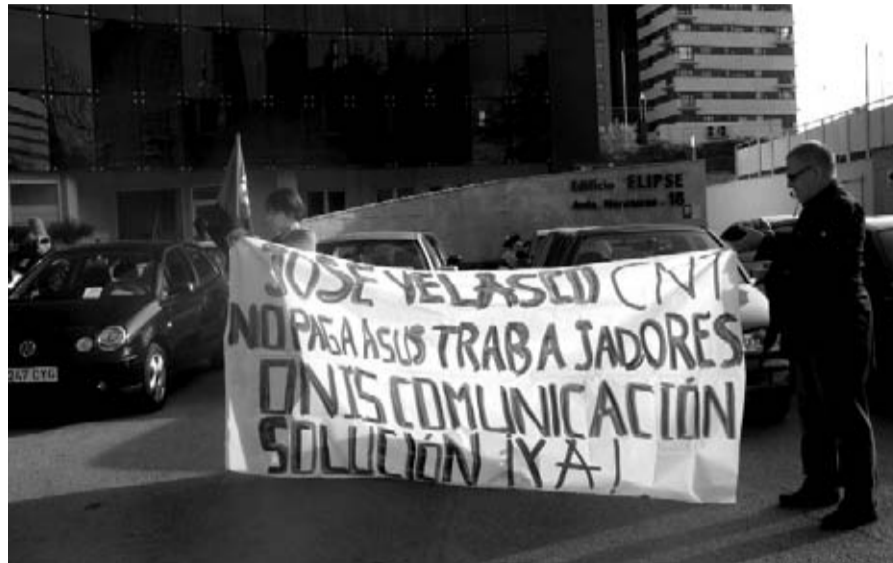 Edificio ELIPSE
Avda. Manoteras - 18
JOSE VELASCO CNT
NO PAGA A SUS TRABAJADORES
ONIS COMUNICACIÓN
SOLUCIÓN ¡YA!
247 CYG